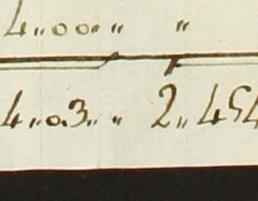 4„00„ „ „
4„03„ „ 2„454